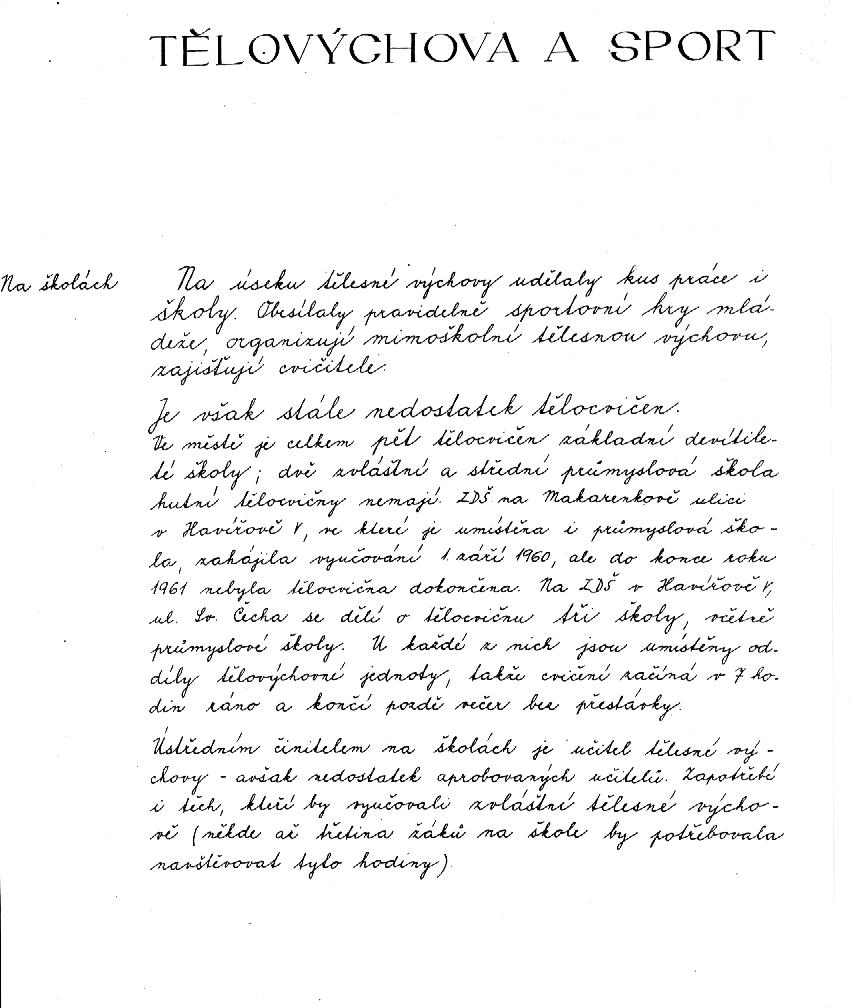 TĚLOVÝCHOVA A SPORT
Na školách
Na úseku tělesné výchovy udělaly kus práce i
školy. Obesílaly pravidelně sportovní hry mlá-
deže, organizují mimoškolní tělesnou výchovu,
zajišťují cvičitele.
Je však stále nedostatek tělocvičen.
Ve městě je celkem pět tělocvičen základní devítile-
té školy; dvě zvláštní a střední průmyslová škola
hutní tělocvičny nemají. ZDŠ na Makarenkově ulici
v Havířově V, ve které je umístěna i průmyslová ško-
la, zahájila vyučování 1. září 1960, ale do konce roku
1961 nebyla tělocvična dokončena. Na ZDŠ v Havířově V,
ul. Sv. Čecha se dělí o tělocvičnu tři školy, včetně
průmyslové školy. U každé z nich jsou umístěny od-
díly tělovýchovné jednoty, takže cvičení začíná v 7 ho-
din ráno a končí pozdě večer bez přestávky.
Ústředním činitelem na školách je učitel tělesné vý-
chovy - avšak nedostatek aprobovaných učitelů. Zapotřebí
i těch, kteří by vyučovali zvláštní tělesné výcho-
vě (někde až třetina žáků na škole by potřebovala
navštěvovat tyto hodiny).